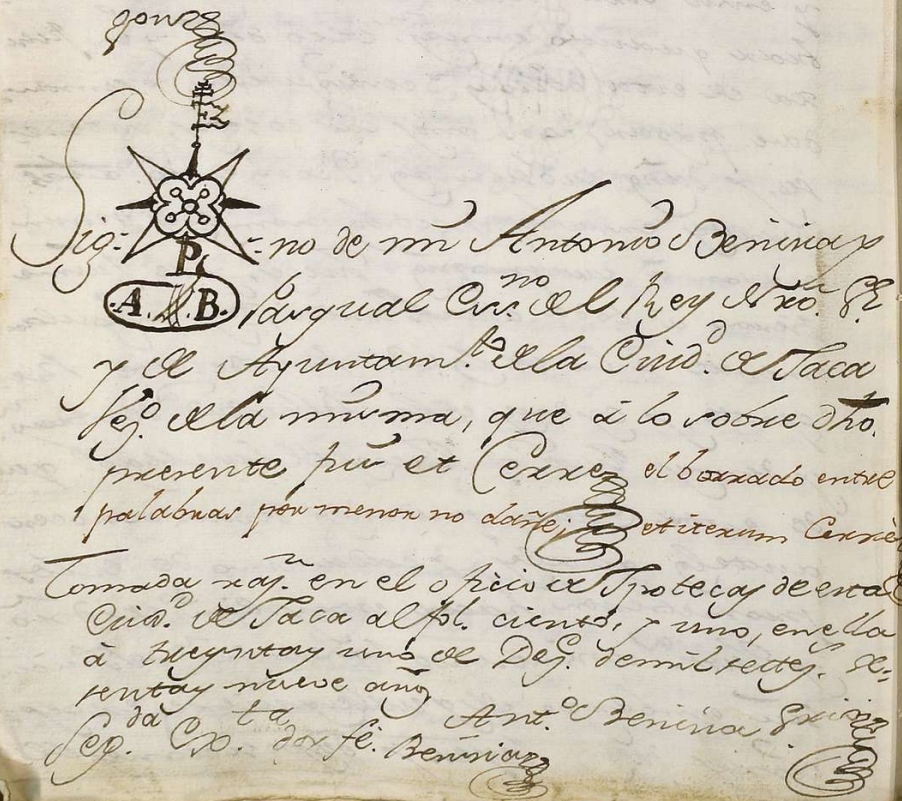 Sig- -no de mi Antonio Benina y
P.
A. B. Pasqual Ess.no del Rey Nro. Sr.
y de Ayuntam.to de la Ciud.d de Jaca
Vez.o de la misma, que á lo sobre dho.
presente fui et Cerre el borrado entre
palabras por menor no dañe; et iterum Cerrè
Tomada raz.n en el oficio de Ypotecas de esta
Ciud.d de Jaca al fol. ciento, y uno, en ella
á treynta y uno de Dez.e de mil setez.s se-
senta y nueve años
Ant.o Benina
Seg.da Ex.ta doy fe. Benina